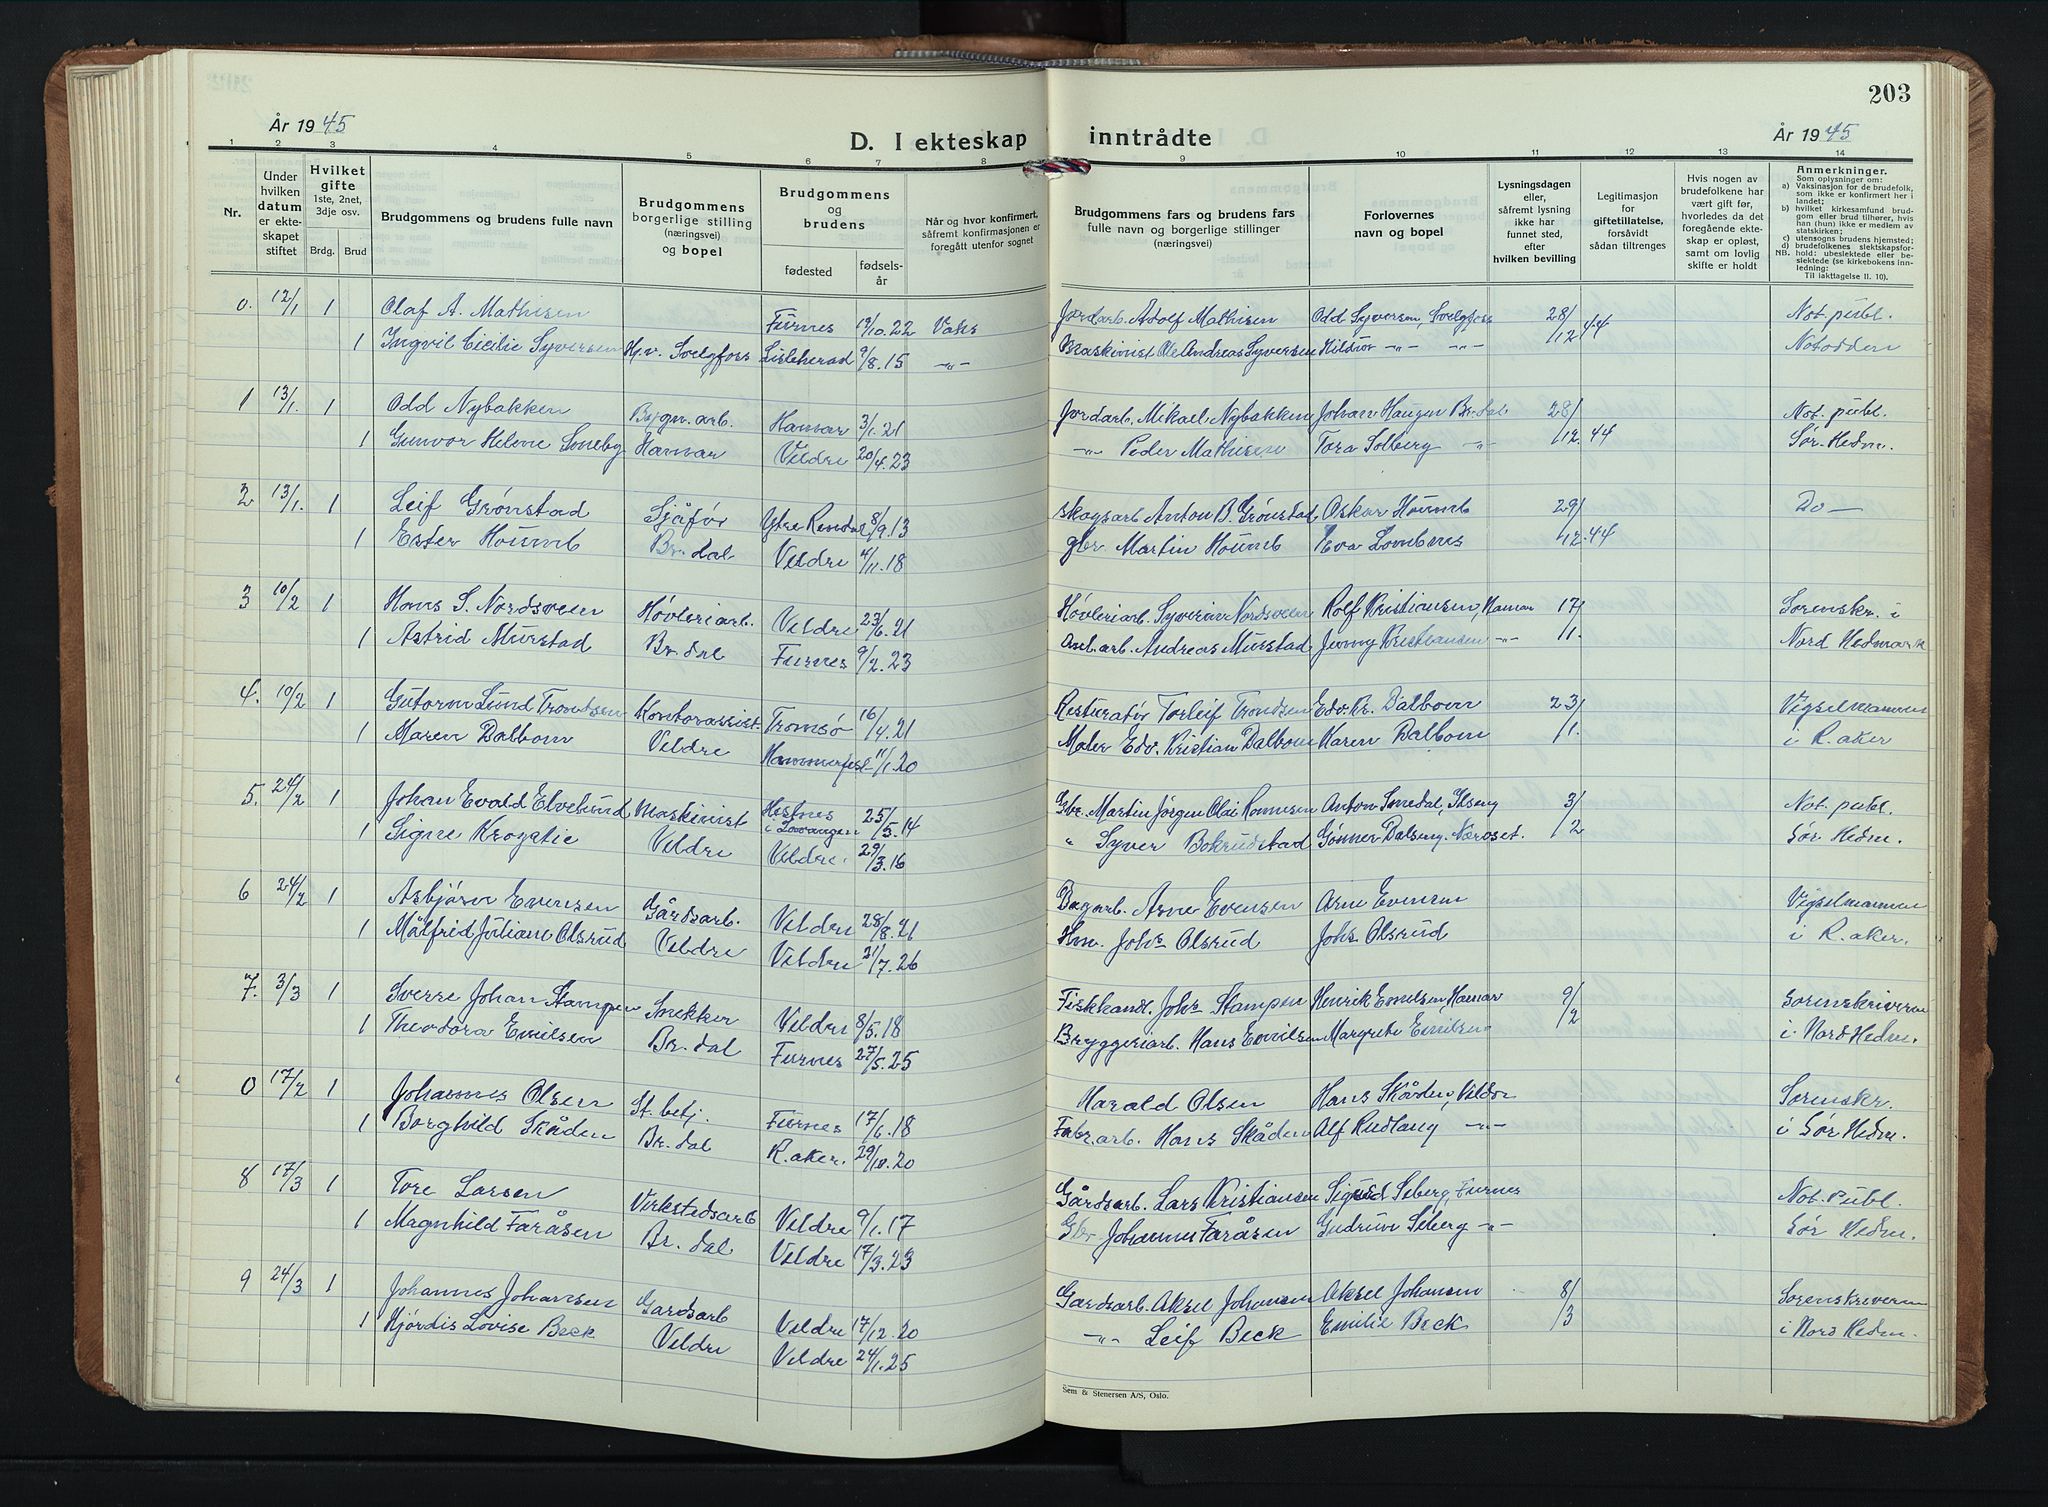 203
År 1945
D. I ekteskap inntrådte
År 1945
1 2 3 4 5 6 7 8 9 10 11 12 13 14
Nr.
Under hvilken datum er ekteskapet stiftet
Hvilket gifte 1ste, 2net, 3dje osv.
Brdg. Brud
Brudgommens og brudens fulle navn
Brudgommens borgerlige stilling (næringsvei) og bopel
Brudgommens og brudens
fødested
fødselsår
Når og hvor konfirmert, såfremt konfirmasjonen er foregått utenfor sognet
Brudgommens fars og brudens fars fulle navn og borgerlige stillinger (næringsvei)
Forlovernes navn og bopel
Lysningsdagen eller, såfremt lysning ikke har funnet sted, efter hvilken bevilling
Legitimasjon for giftetillatelse, forsåvidt sådan tiltrenges
Hvis nogen av brudefolkene har vært gift før, hvorledes da det foregående ekteskap er opløst, samt om lovlig skifte er holdt
Anmerkninger.
Som oplysninger om:
a) Vaksinasjon for de brudefolk, som ikke er konfirmert her i landet;
b) hvilket kirkesamfund brudgom eller brud tilhører, hvis han (hun) ikke er medlem av statskirken;
c) utensogns brudens hjemsted;
d) brudefolkenes slektskapsforhold: ubeslektede eller beslektede (se kirkebokens innledning:
NB.
Til iakttagelse II. 10).
0. 12/1 1 Olaf A. Mathisen Furnes 19/10.22 Vaks Jordarb. Adolf Mathisen Odd Syversen, Svelgfoss 28/12 44 Not. publ.
1 Ingvil Cicilie Syversen H.v. Svelgfoss Lisleherad 9/8.15 -„- Maskinist Ole Andreas Syversen Hildur -„- -„- Notodden
1 13/1. 1 Odd Nybakken Bygn. arb. Hamar 3/1.21 Jordarb. Mikael Nybakken Johan Haugen Br.dal 28/12.44 Not. publ.
1 Gunvor Helene Smeby Hamar Veldre 20/4.23 -„- Peder Mathisen Tora Solberg -„- Sør-Hedm.
2 13/1. 1 Leif Grønstad Sjåfør Ytre Rendal 8/9.13 skogsarb. Anton B. Grønstad Oskar Houmb 29/12.44 Do —
1 Ester Houmb Br.dal Veldre 4/11.18 gbr. Martin Houmb Eva Lombnes
3 10/2 1 Hans S. Nordsveen Høvleriarb. Veldre 23/6.21 Høvleriarb. Syverin Nordsveen Rolf Kristiansen, Hamar 17/1. Sorenskr. i
1 Astrid Murstad Br.dal Furnes 9/2.23 Anl.arb. Andreas Murstad Jenny Kristiansen -„- Nord Hedmark
4. 10/2 1 Gutorm Lund Trondsen Kontorassist. Tromsø 16/4.21 Resturatør Torleif Trondsen Edv. Kr. Dalbom 23/1. Vigselmannen
1 Maren Dalbom Veldre Hammerfest 11/1.20 Maler Edv. Kristian Dalbom Karen Dalbom i R.aker
5. 24/2 1 Johan Evald Elvelund Maskinist Hestnes i Lavangen 25/5.14 Gbr. Martin Jørgen Olai Rønnesen Anton Smedal, Ilseng 3/2 Not. publ.
1 Signe Krogstie Veldre Veldre. 29/3.16 „ Syver Bokrudstad Gønner Dalseng. Næroset. Sør Hedm.
6 24/2 1 Asbjørn Evensen Gårdsarb. Veldre 28/8.21 Bagarb. Arne Evensen Arne Evensen Vigselmannen
1 Målfrid Juliane Olsrud Veldre Veldre 21/7.26 Hm. Johs Olsrud Johs Olsrud i R.aker.
7. 3/3 1 Sverre Johan Stampen Snekker Veldre 8/5.18 Fiskhandl. Johs Stampen Henrik Emilsen, Hamar 9/2 Sorenskriveren
1 Theodora Emilsen Br.dal Furnes 27/5.25 Bryggeriarb. Hans Emilsen Margrete Emilsen i Nord Hedm.
0 17/2 1 Johannes Olsen St.betj. Furnes 17/6.18 Harald Olsen Hans Skåden, Veldre Sorenskr.
1 Borghild Skåden Br.dal R.aker. 29/10.20 Fabr.arb. Hans Skåden Alf Rudlang -„- i Sør Hedm.
8 17/3 1 Tore Larsen Virkstedsarb Veldre 9/1.17 Gårdsarb. Lars Kristiansen Sigurd Seberg, Furnes Not. Publ.
1 Magnhild Faråsen Br.dal Veldre 17/3.23 Gbr Johannes Faråsen Gudrun Seberg -„- Sør Hedm.
9 24/3 1 Johannes Johansen Gardsarb Veldre 17/12.20 Gardsarb. Aksel Johansen Aksel Johansen 8/3 Sorenskriveren
1 Hjørdis Lovise Beck Veldre Veldre 24/1.25 -„- Leif Beck Emilie Beck i Nord Hedm.
Sem & Stenersen A/S, Oslo.